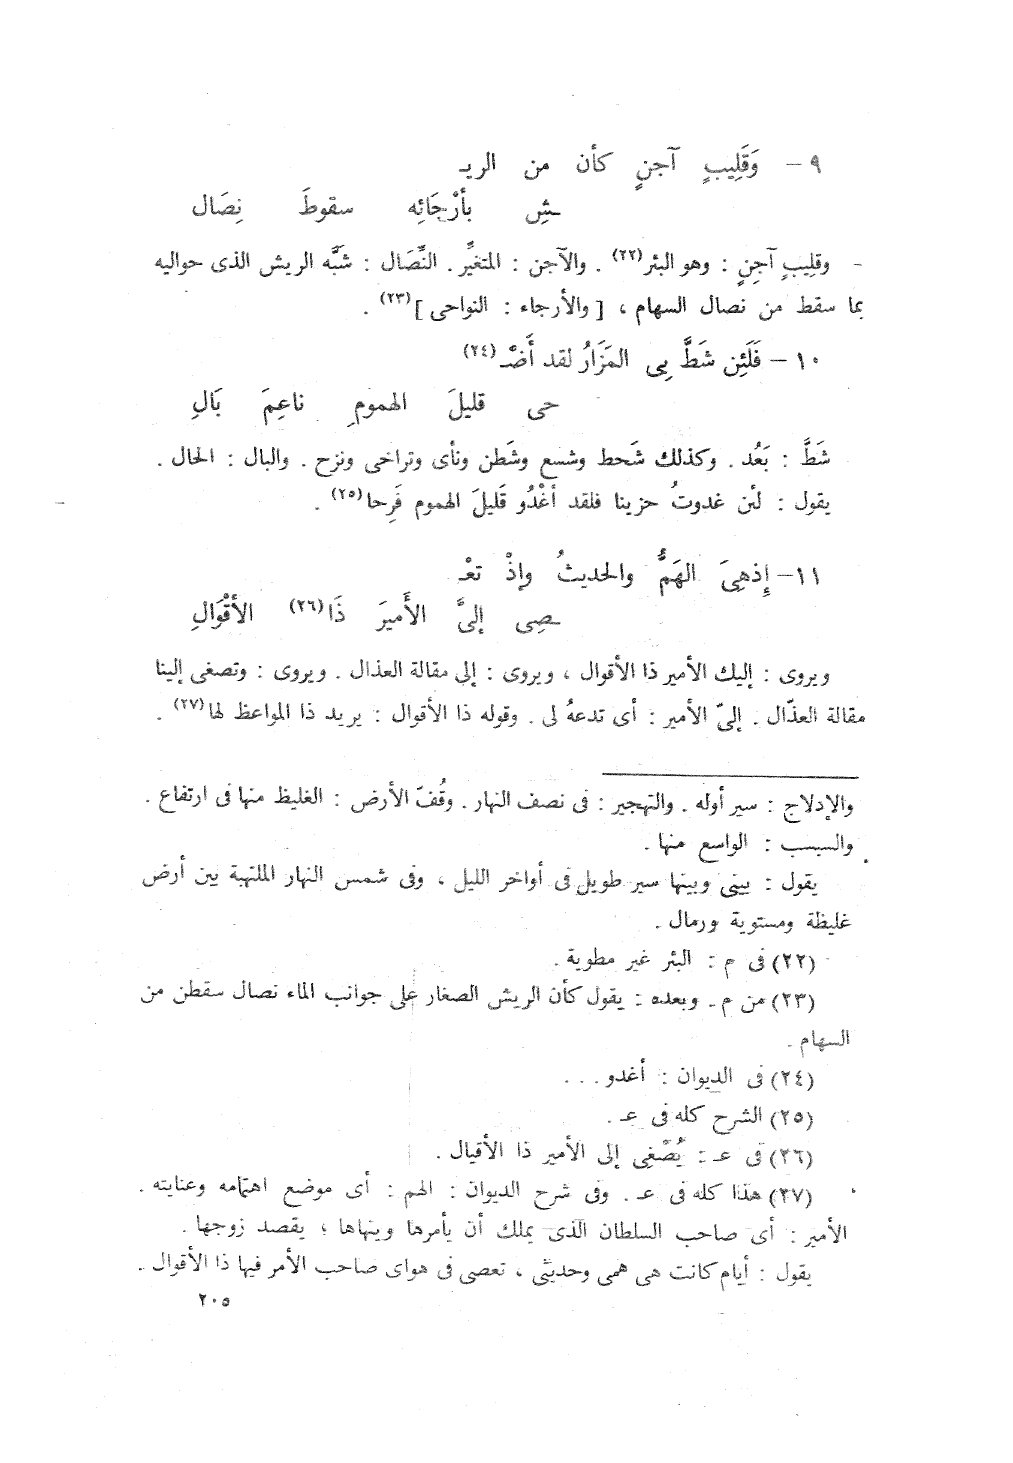 ٩ – وَقَلِيبٍ آجنٍ كأن من الريـ
ـشِ بأرْجَائِه سقوطَ نِصَال
– وقلِيبٍ آجِنٍ : وهو البئر(٢٢) . والآجن : المتغيِّر . النِّصَال : شبَّه الريش الذى حواليه
بما سقط من نصال السهام ، [ والأرجاء : النواحى ](٢٣) .
١٠ – فَلَئِن شَطَّ بِى المَزَارُ لقد أَضْـ(٢٤)
حى قليلَ الهمومِ ناعِمَ بَالِ
شَطَّ : بَعُد . وكذلك شَحط وشسع وشَطن ونأى وتراخى ونزح . والبال : الحال .
يقول : لئن غدوتُ حزينا فلقد أغْدُو قَليلَ الهموم فَرِحا(٢٥) .
١١ – إِذهِىَ الهَمُّ والحديثُ وإذْ تعْـ
ـصِى إلىَّ الأَميرَ ذَا(٢٦) الأقْوَالِ
ويروى : إليك الأمير ذا الأقوال ، ويروى : إلى مقالة العذال . ويروى : وتصغى إلينا
مقالة العذّال . إلىّ الأمير : أى تدعهُ لى . وقوله ذا الأقوال : يريد ذا المواعظ لها(٢٧) .
والإدلاج : سير أوله . والتهجير : فى نصف النهار . وقُفّ الأرض : الغليظ منها فى ارتفاع .
والسبسب : الواسع منها .
يقول : بينى وبينها سير طويل فى أواخر الليل ، وفى شمس النهار الملتهبة بين أرض
غليظة ومستوية ورمال .
(٢٢) فى م : البئر غير مطوية .
(٢٣) من م . وبعده : يقول كأن الريش الصغار على جوانب الماء نصال سقطن من
السهام .
(٢٤) فى الديوان : أغدو . . .
(٢٥) الشرح كله فى عـ .
(٢٦) فى عـ : يُصْغِى إلى الأمير ذا الأقيال .
(٢٧) هذا كله فى عـ . وفى شرح الديوان : الهم : أى موضع اهتمامه وعنايته .
الأمير : أى صاحب السلطان الذى يملك أن يأمرها وينهاها ؛ يقصد زوجها .
يقول : أيام كانت هى همى وحديثى ، تعصى فى هواى صاحب الأمر فيها ذا الأقوال .
٢٠٥